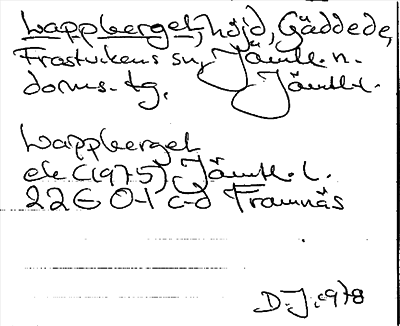 Lappberget, höjd, Gäddede,
Frostvikens sn, Jämtl. n.
doms. tg, Jämtl.
Lappberget
ek (1975), Jämtl. l.
22E 0-1 c-d Framnäs
D. J. 1978